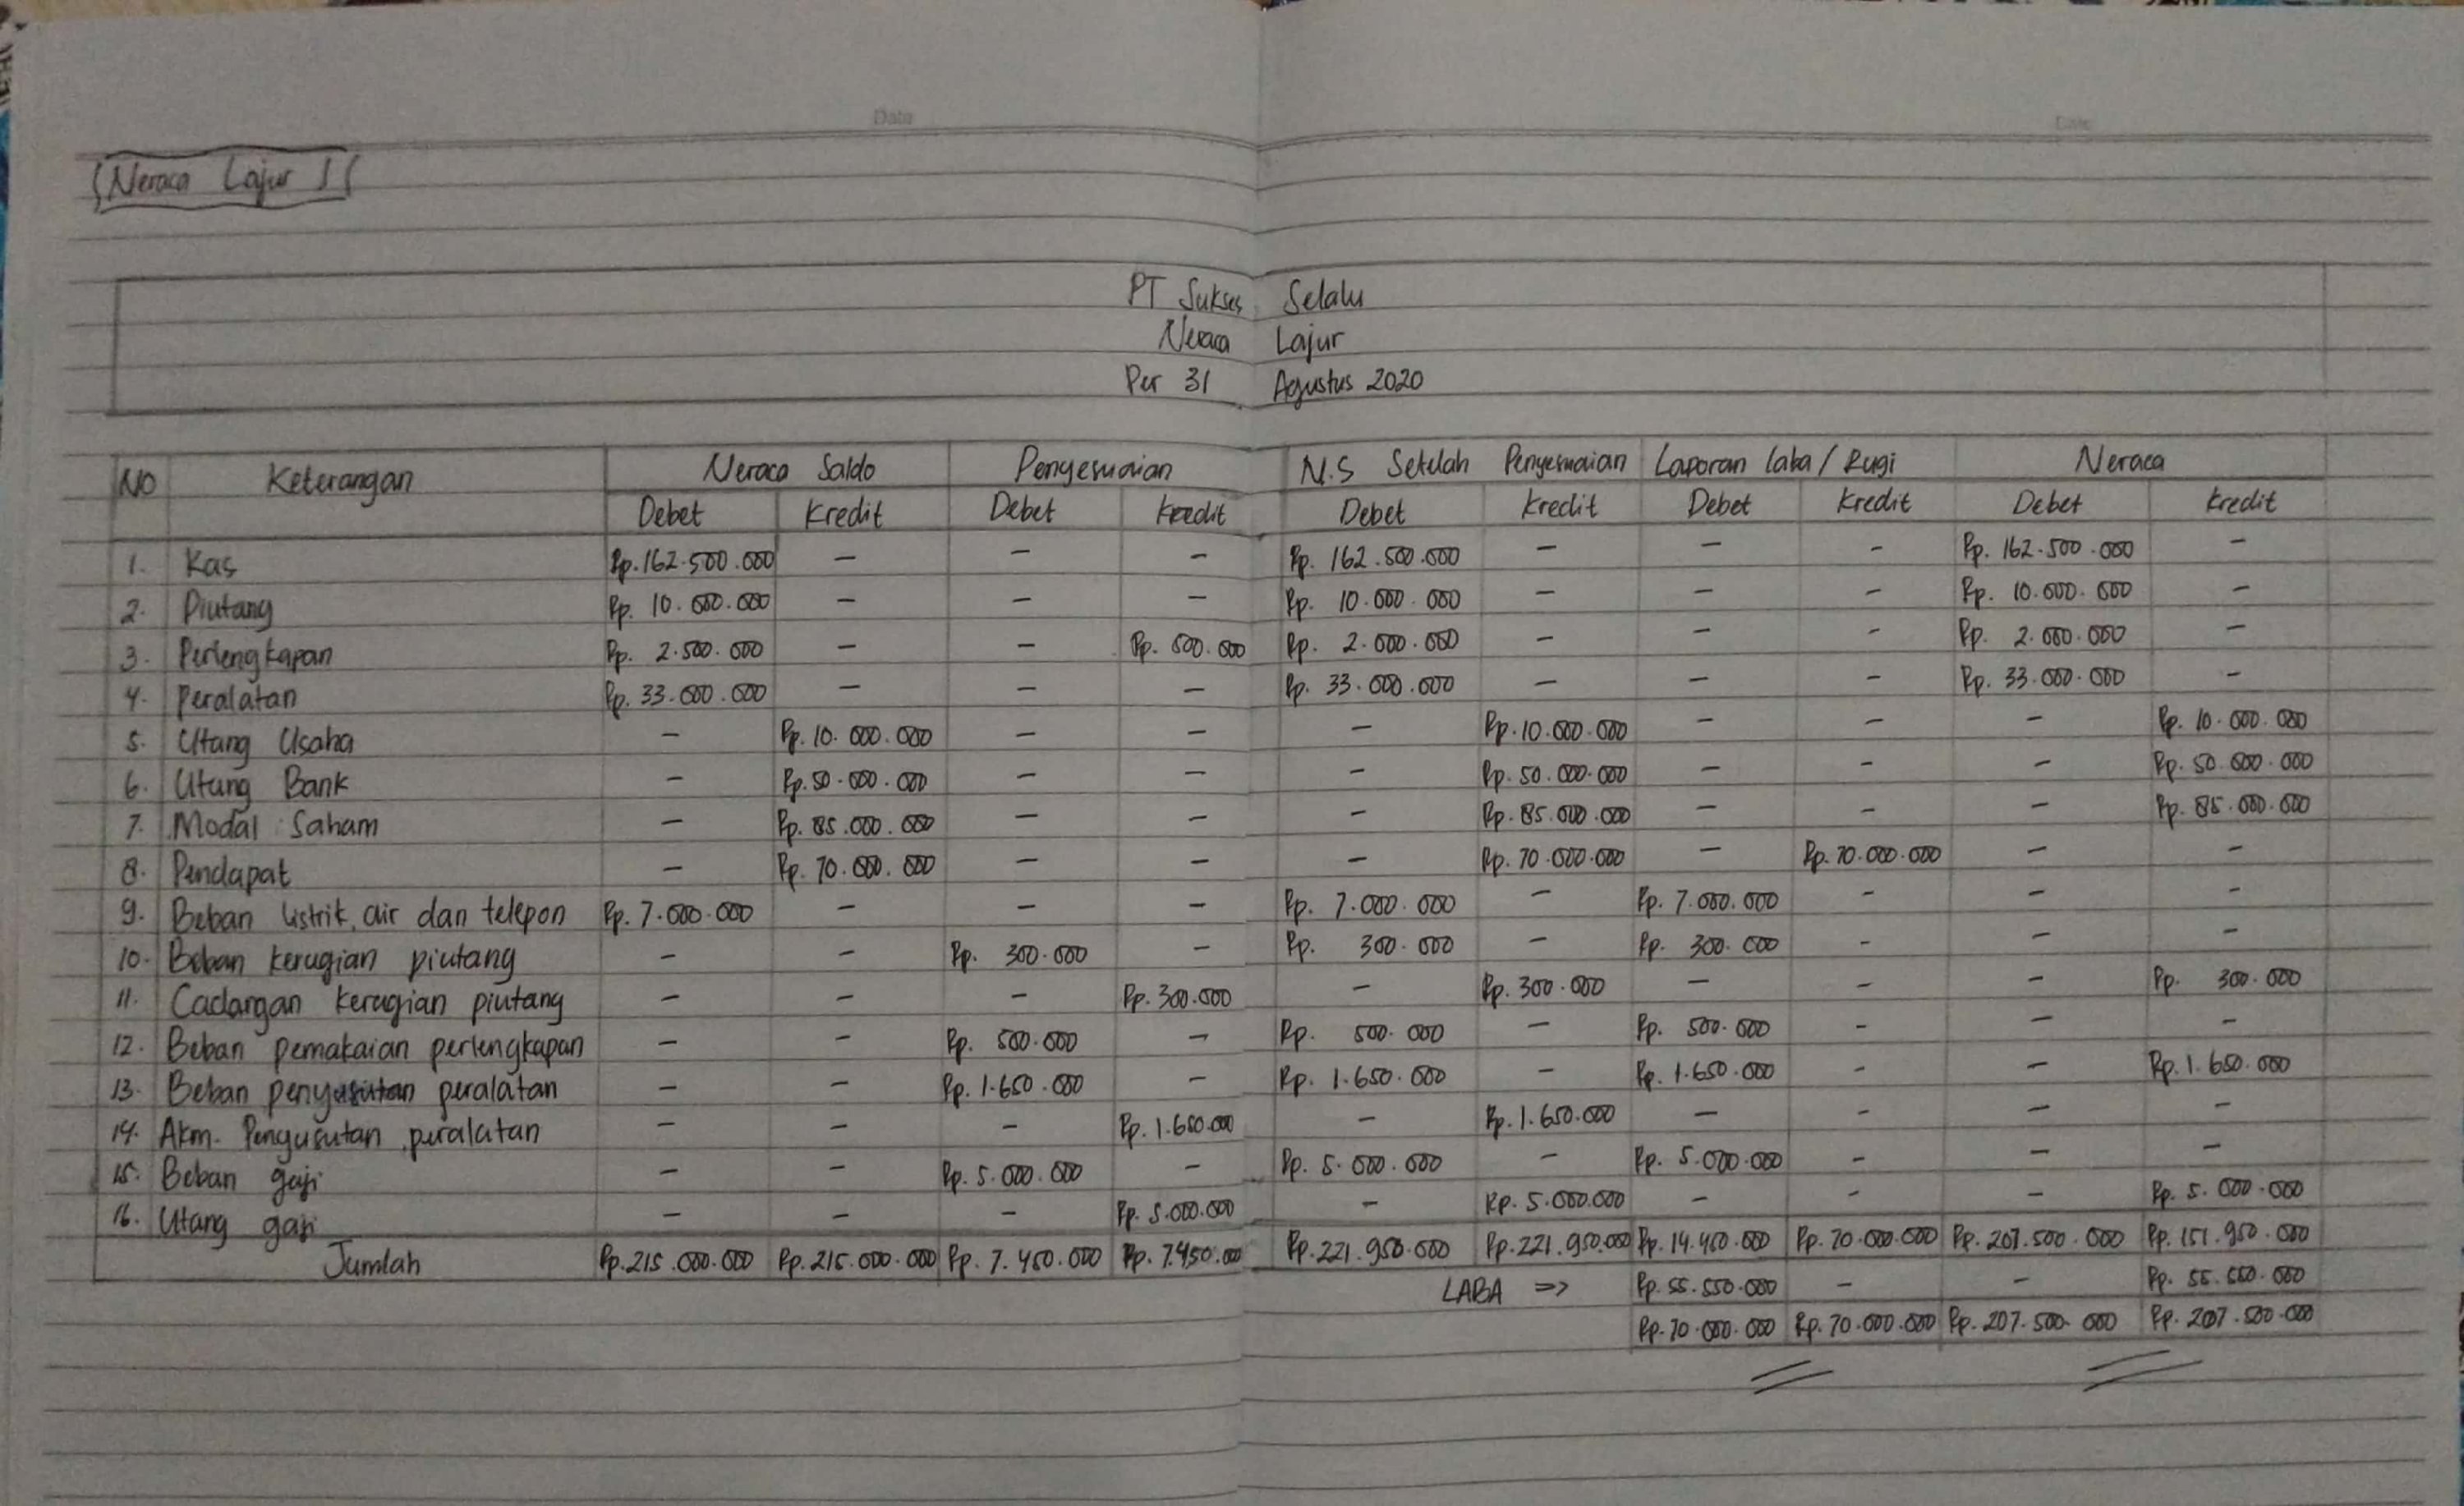 Date
Date
Neraca Lajur
PT Sukses Selalu
Neraca Lajur
Per 31 Agustus 2020
NO Keterangan Neraca Saldo Penyesuaian N.S Setelah Penyesuaian Laporan Laba / Rugi Neraca
Debet Kredit Debet Kredit Debet Kredit Debet Kredit Debet Kredit
1. Kas Rp. 162.500.000 – – – Rp. 162.500.000 – – – Rp. 162.500.000 –
2. Piutang Rp. 10.000.000 – – – Rp. 10.000.000 – – – Rp. 10.000.000 –
3. Perlengkapan Rp. 2.500.000 – – Rp. 500.000 Rp. 2.000.000 – – – Rp. 2.000.000 –
4. Peralatan Rp. 33.000.000 – – – Rp. 33.000.000 – – – Rp. 33.000.000 –
5. Utang Usaha – Rp. 10.000.000 – – – Rp. 10.000.000 – – – Rp. 10.000.000
6. Utang Bank – Rp. 50.000.000 – – – Rp. 50.000.000 – – – Rp. 50.000.000
7. Modal Saham – Rp. 85.000.000 – – – Rp. 85.000.000 – – – Rp. 85.000.000
8. Pendapat – Rp. 70.000.000 – – – Rp. 70.000.000 – Rp. 70.000.000 – –
9. Beban listrik, air dan telepon Rp. 7.000.000 – – – Rp. 7.000.000 – Rp. 7.000.000 – – –
10. Beban kerugian piutang – – Rp. 300.000 – Rp. 300.000 – Rp. 300.000 – – –
11. Cadangan kerugian piutang – – – Rp. 300.000 – Rp. 300.000 – – – Rp. 300.000
12. Beban pemakaian perlengkapan – – Rp. 500.000 – Rp. 500.000 – Rp. 500.000 – – –
13. Beban penyusutan peralatan – – Rp. 1.650.000 – Rp. 1.650.000 – Rp. 1.650.000 – – Rp. 1.650.000
14. Akm. Penyusutan peralatan – – – Rp. 1.650.000 – Rp. 1.650.000 – – – –
15. Beban gaji – – Rp. 5.000.000 – Rp. 5.000.000 – Rp. 5.000.000 – – –
16. Utang gaji – – – Rp. 5.000.000 – Rp. 5.000.000 – – – Rp. 5.000.000
Jumlah Rp. 215.000.000 Rp. 215.000.000 Rp. 7.450.000 Rp. 7.450.000 Rp. 221.950.000 Rp. 221.950.000 Rp. 14.450.000 Rp. 70.000.000 Rp. 207.500.000 Rp. 151.950.000
LABA => Rp. 55.550.000 – – Rp. 55.550.000
Rp. 70.000.000 Rp. 70.000.000 Rp. 207.500.000 Rp. 207.500.000